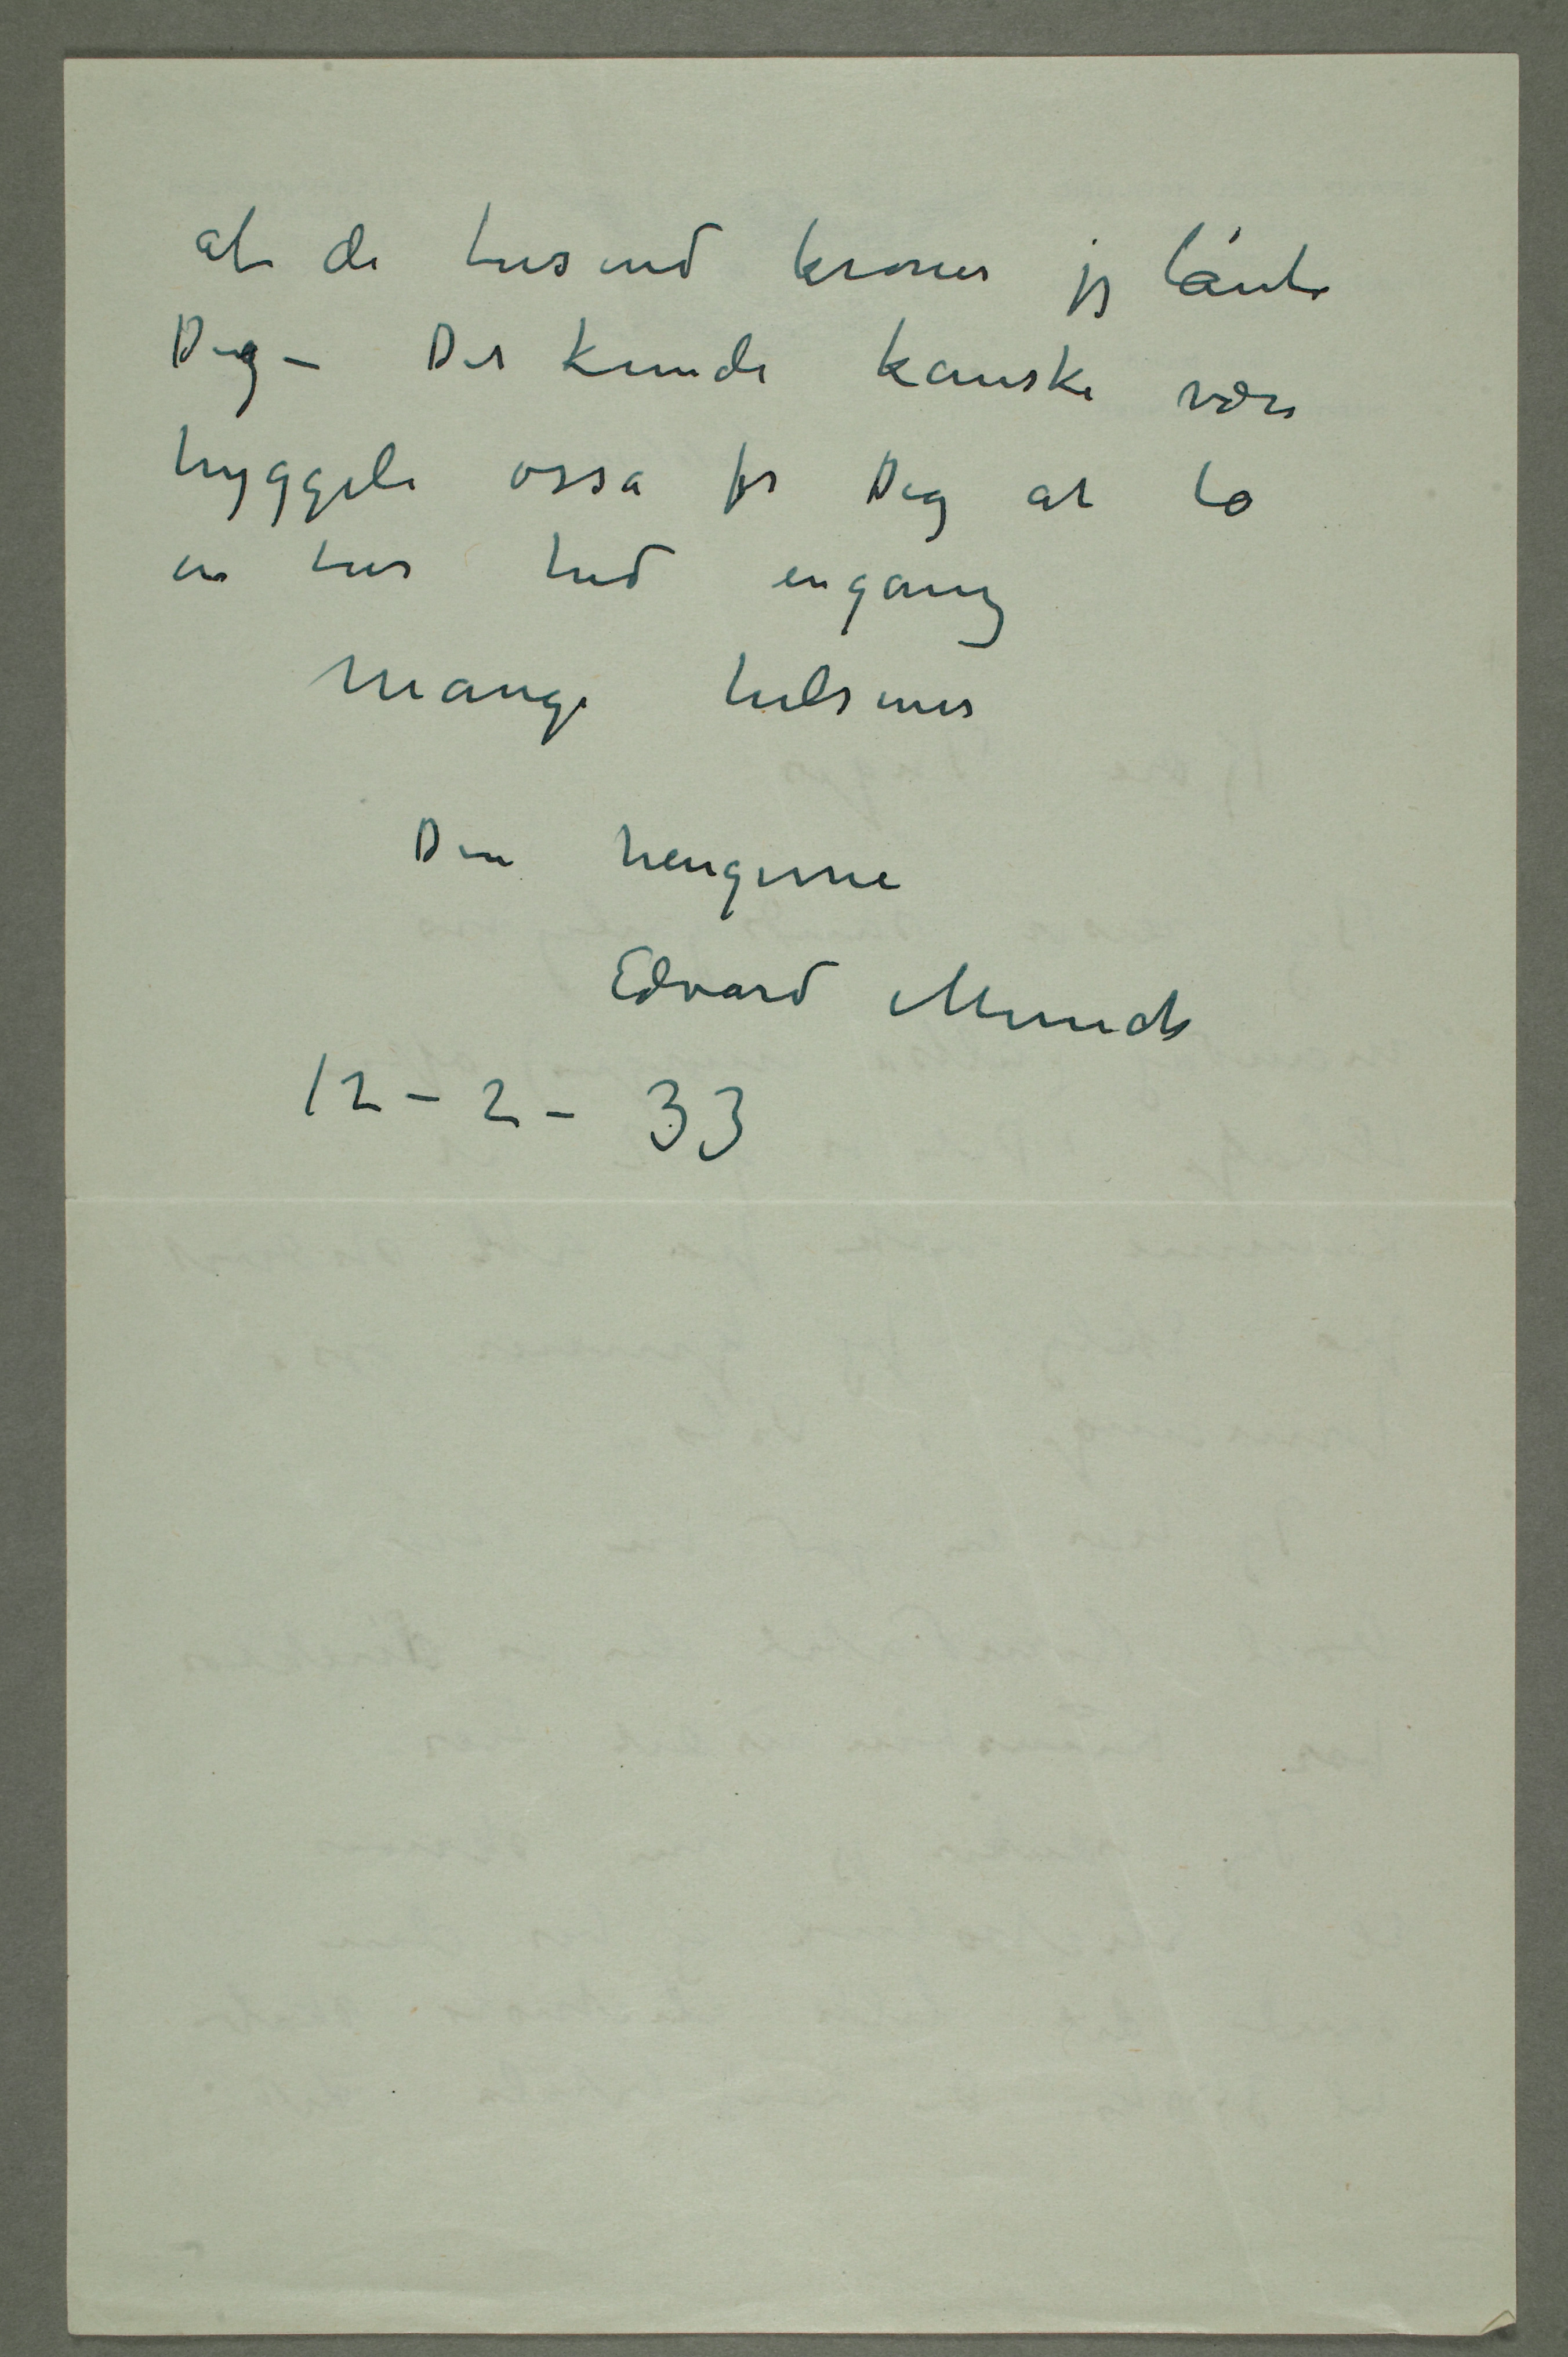 af de tusend kroner jeg lånte
Dig – Det kunde kanske være
hyggeli osså for Dig at ta
en tur hid engang
Mange hilsener
Din hengivne
Edvard Munch
12 – 2 – 33